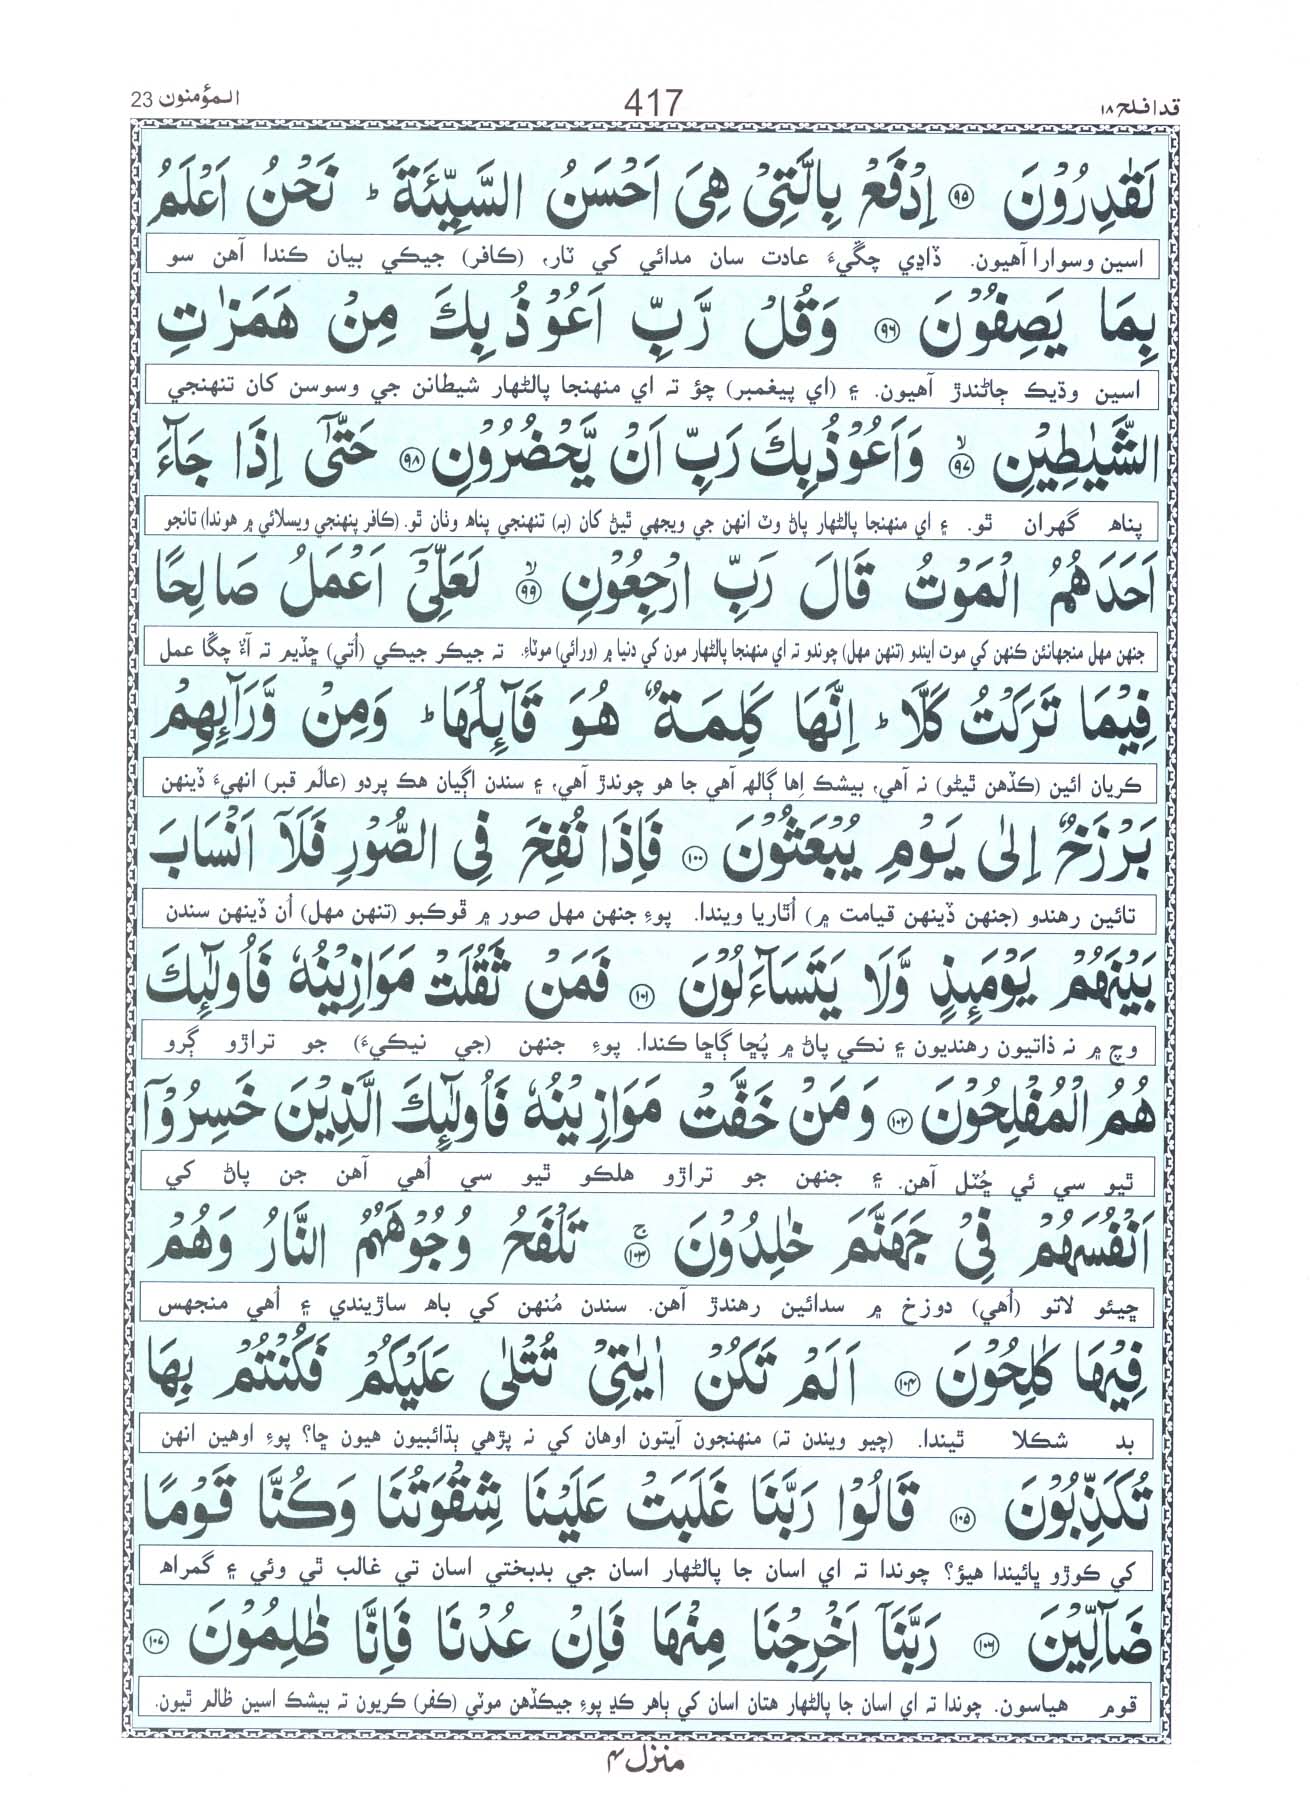 قدافلح ۱۸ 417 المؤمنون 23
لَقٰدِرُوْنَ ۹۵ اِدْفَعْ بِالَّتِیْ هِیَ اَحْسَنُ السَّیِّئَةَ ؕ نَحْنُ اَعْلَمُ
اسين وسوارا آهيون. ڏاڍي چڱيءَ عادت سان مدائي کي ٽار، (ڪافر) جيڪي بيان ڪندا آهن سو
بِمَا یَصِفُوْنَ ۹۶ وَقُلْ رَّبِّ اَعُوْذُ بِكَ مِنْ هَمَزٰتِ
اسين وڌيڪ ڄاڻندڙ آهيون. ۽ (اي پيغمبر) چؤ ته اي منهنجا پالڻهار شيطانن جي وسوسن کان تنهنجي
الشَّیٰطِیْنِ ۙ ۹۷ وَاَعُوْذُ بِكَ رَبِّ اَنْ یَّحْضُرُوْنِ ۹۸ حَتّٰۤی اِذَا جَآءَ
پناھ گهران ٿو. ۽ اي منهنجا پالڻهار پاڻ وٽ انهن جي ويجهي ٿيڻ کان (به) تنهنجي پناھ وٺان ٿو. (ڪافر پنهنجي ويسلائي ۾ هوندا) تانجو
اَحَدَهُمُ الْمَوْتُ قَالَ رَبِّ ارْجِعُوْنِ ۙ ۹۹ لَعَلِّیْۤ اَعْمَلُ صَالِحًا
جنهن مهل منجهانئن ڪنهن کي موت ايندو (تنهن مهل) چوندو ته اي منهنجا پالڻهار مون کي دنيا ۾ (ورائي) موٽاءِ. ته جيڪر جيڪي (اُتي) ڇڏيم ته آءٌ چڱا عمل
فِیْمَا تَرَكْتُ كَلَّا ؕ اِنَّهَا كَلِمَةٌ هُوَ قَآىِٕلُهَا ؕ وَمِنْ وَّرَآىِٕهِمْ
ڪريان ائين (ڪڏهن ٿيڻو) نه آهي، بيشڪ اِها ڳالهه آهي جا هو چوندڙ آهي، ۽ سندن اڳيان هڪ پردو (عالَم قبر) انهيءَ ڏينهن
بَرْزَخٌ اِلٰی یَوْمِ یُبْعَثُوْنَ ۱۰۰ فَاِذَا نُفِخَ فِی الصُّوْرِ فَلَاۤ اَنْسَابَ
تائين رهندو (جنهن ڏينهن قيامت ۾) اُٿاريا ويندا. پوءِ جنهن مهل صور ۾ ڦوڪبو (تنهن مهل) اُن ڏينهن سندن
بَیْنَهُمْ یَوْمَىِٕذٍ وَّلَا یَتَسَآءَلُوْنَ ۱۰۱ فَمَنْ ثَقُلَتْ مَوَازِیْنُهٗ فَاُولٰٓىِٕكَ
وچ ۾ نه ذاتيون رهنديون ۽ نڪي پاڻ ۾ پُڇا ڳاڇا ڪندا. پوءِ جنهن (جي نيڪيءَ) جو تراڙو ڳرو
هُمُ الْمُفْلِحُوْنَ ۱۰۲ وَمَنْ خَفَّتْ مَوَازِیْنُهٗ فَاُولٰٓىِٕكَ الَّذِیْنَ خَسِرُوْۤا
ٿيو سي ئي ڇُٽل آهن. ۽ جنهن جو تراڙو هلڪو ٿيو سي اُهي آهن جن پاڻ کي
اَنْفُسَهُمْ فِیْ جَهَنَّمَ خٰلِدُوْنَ ۚ ۱۰۳ تَلْفَحُ وُجُوْهَهُمُ النَّارُ وَهُمْ
ڇيئو لاتو (اُهي) دوزخ ۾ سدائين رهندڙ آهن. سندن مُنهن کي باھ ساڙيندي ۽ اُهي منجهس
فِیْهَا كٰلِحُوْنَ ۱۰۴ اَلَمْ تَكُنْ اٰیٰتِیْ تُتْلٰی عَلَیْكُمْ فَكُنْتُمْ بِهَا
بد شڪلا ٿيندا. (چيو ويندن ته) منهنجون آيتون اوهان کي نه پڙهي ٻڌائبيون هيون ڇا؟ پوءِ اوهين انهن
تُكَذِّبُوْنَ ۱۰۵ قَالُوْا رَبَّنَا غَلَبَتْ عَلَیْنَا شِقْوَتُنَا وَكُنَّا قَوْمًا
کي ڪوڙو ڀائيندا هيؤ؟ چوندا ته اي اسان جا پالڻهار اسان جي بدبختي اسان تي غالب ٿي وئي ۽ گمراھ
ضَآلِّیْنَ ۱۰۶ رَبَّنَاۤ اَخْرِجْنَا مِنْهَا فَاِنْ عُدْنَا فَاِنَّا ظٰلِمُوْنَ ۱۰۷
قوم هياسون. چوندا ته اي اسان جا پالڻهار هتان اسان کي ٻاهر ڪڍ پوءِ جيڪڏهن موٽي (ڪفر) ڪريون ته بيشڪ اسين ظالم ٿيون.
منزل ۴